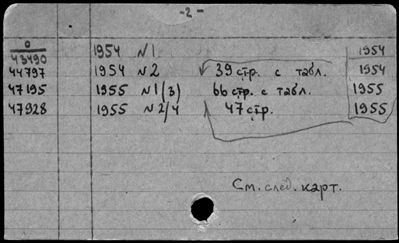 -2-
0
43490 1954 N1 1954
44797 1954 N2 39 стр. с табл. 1954
47195 1955 N1(3) 66 стр. с табл. 1955
47928 1955 N2/4 47 стр. 1955
См. след. карт.